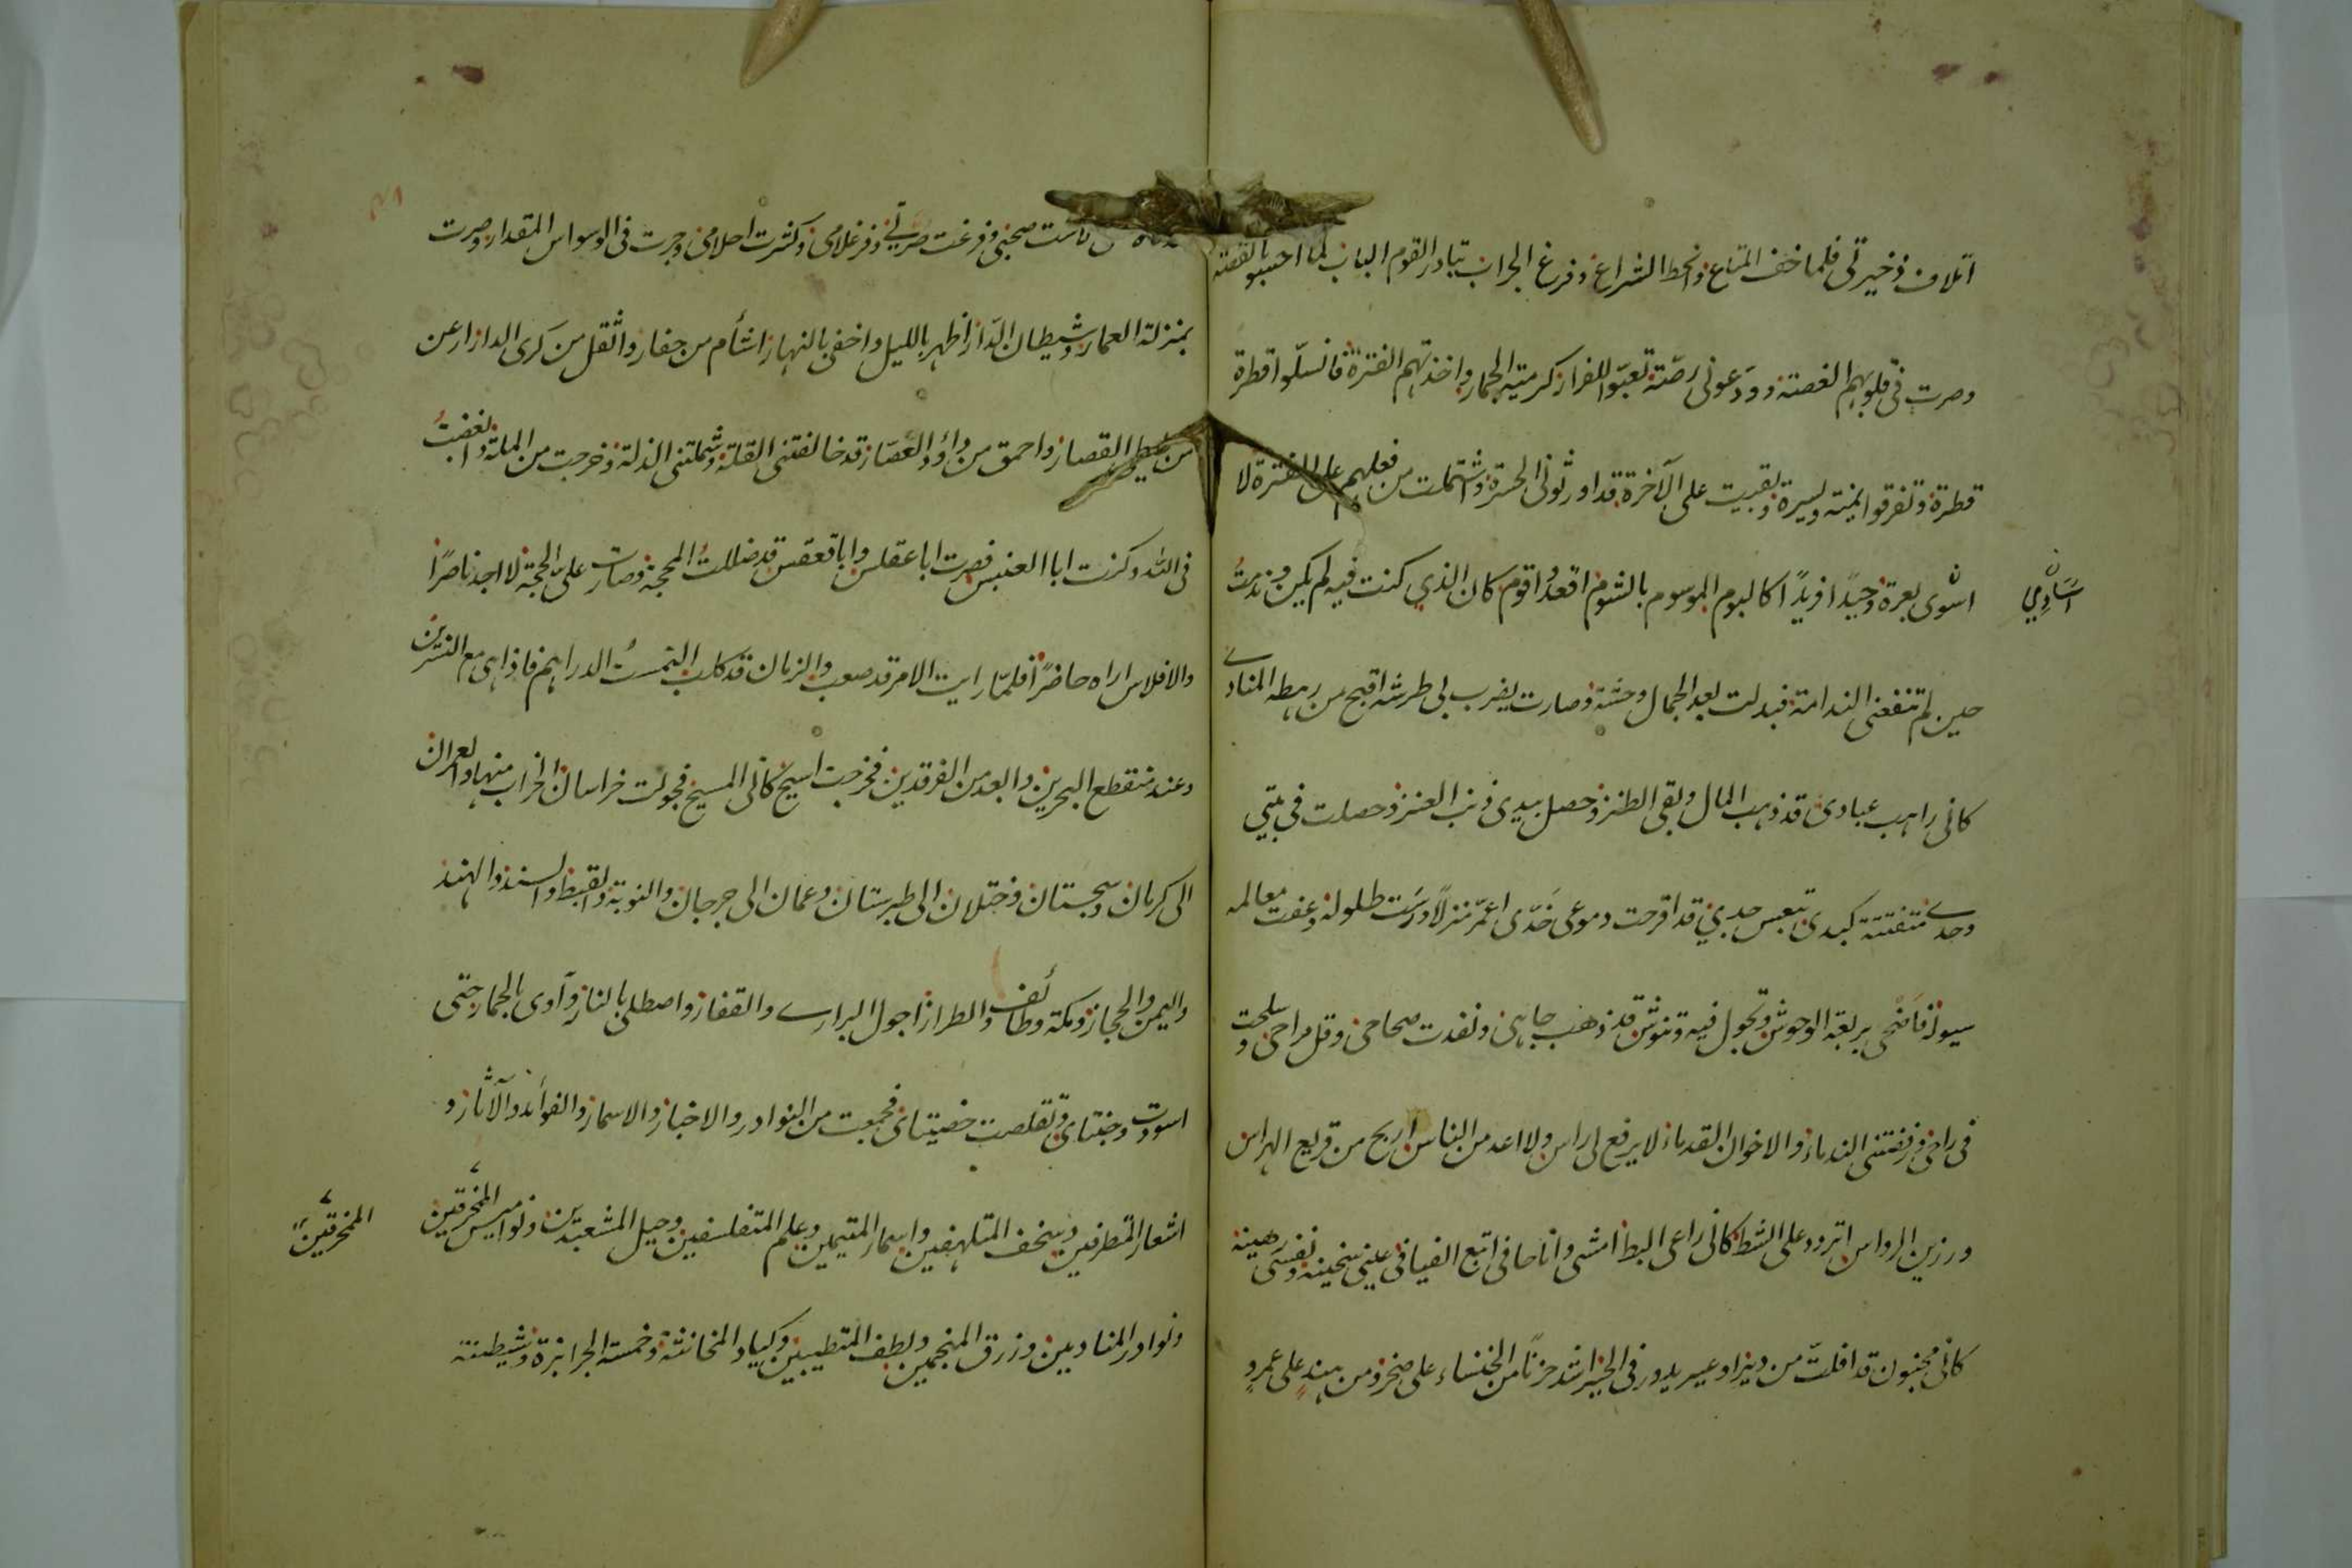 اتلاف ذخيرتى فلما خف المتاع وانحط الشراع وفرغ الجراب تبادر القوم الباب لما احسوا بالقصة
وصرت فى قلوبهم الغصة ودعونى رصة تعبّوا للفرار كرمية الجمار واخذتهم الفترة فانسلّوا قطرة
قطرة وتفرقوا يمنة ويسرة وبقيت على الآخرة قد اورثونى الحسرة واشتملت من فعلهم على الفترة لا
اسوى بعرة وحيدًا فريدًا كالبوم الموسوم بالشوم اقع واقوم كان الذي كنت فيه لم يكن وندمتُ
استَادِمي
حين لم تنفعنى الندامة فبدلت بعد الجمال وحشة وصارت يضرب بى طرشة اقبح من رهطه المنادے
كانى راهب عبادى قد ذهب المال وبقى الطنز وحصل بيدى ذنب العنز وحصلت فى بيتي
وحدے متفتتة كبدى تعس جدي قد اقرحت دموعى خدّى اعمر منزلًا درست طلوله وعفت معالمه
سيوله فاضحى بربعه الوحوش تجول فيه وتنوش قد ذهب جاهى ونفدت صحاحى وقل مراحى وسلحت
فى راحى ورفضتنى الندماء والاخوان القدماء لا يرفع لى راس ولا اعد من الناس اريح من قريع الهراس
ورزين الرواس اتردد على الشط كانى راعى البط امشى وانا حافى اتبع الفيافى عينى سخينة ونفسى رهينة
كانى مجنون قد افلت من دير او عير يدور فى الحير اشد حزنًا من الخنساء على صخر ومن هندٍ على عمرو
تاهت صحبتى وفرغت صرتى وفر غلامى وكثرت احلامى وجرت فى الوسواس المقدار وصرت
بمنزلة العمار وشيطان الدار اظهر بالليل واخفى بالنهار اشأم من حفار واثقل من كرى الدار ارعن
من طيطى القصار واحمق من داؤد العصّار قد خالفتنى القلة وشملتنى الذلة وخرجت من الملة وابغضتُ
فى الله وكنت ابا العنبس فصرت ابا عقلس وابا قعقس قد ضللتُ المحجة وصارت علىّ الحجة لا اجد ناصرًا
والافلاس اراه حاضرًا فلمّا رايت الامر قد صعب والزمان قد كلب التمستُ الدراهم فاذا هى مع النسرين
وعند منقطع البحرين وابعد من الفرقدين فخرجت اسيح كانى المسيح فجولت خراسان الخراب منها والعمران
الى كرمان وسجستان وختلان الى طبرستان وعمان الى جرجان والنوبة والقبط والسند والهند
واليمن والحجاز ومكة وطائف والطراز اجول البرارے والقفار واصطلى بالنار وآوى بالحمار حتى
اسودت وجنتاى وتقلصت خصيتاى فجمعت من النوادر والاخبار والاسمار والفوائد والآثار و
اشعار المتطرفين وسخف المتلهفين واسمار المتيمين وعلم المتفلسفين وحيل المشعبذين ونواميس المخرقين
المخرقين
ونوادر المنادمين وزرق المنجمين ولطف المتطببين وكياد المخانثة وخمسة الجرابزة وشيطنة